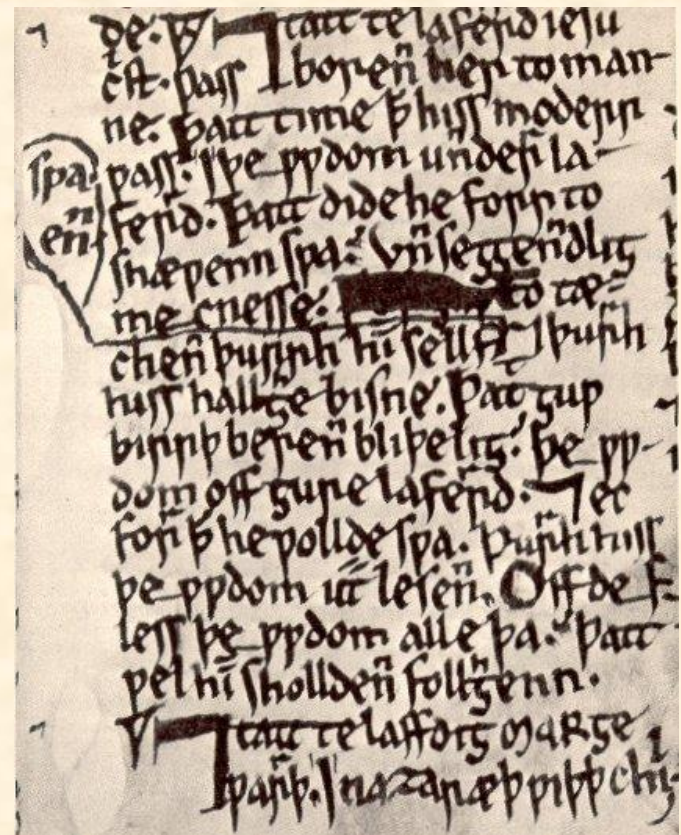 ⁊
de. ⁊tatt te laferꝛd iesu
cſt. ƿass borenñ her to man-
ne. Þatt time þ̄ hiss moderr
ƿass. þeƿƿdom unñderr la-
ferrd. Þatt dide he forr to
shæƿenn sƿa. Unñseggenñdliȝ
mecnesse. to tæ-
chenñ þurrh hi̅ sellf þurrh
hiss hallȝhe bisne. Þatt guƿ
birrþ berenñ bliþeliȝ. þeƿƿ-
dom off gure laferrd. ⁊ ec
forr þ̄ he ƿollde sƿa. Þurrh hiss
þeƿƿdom utt lesenñ. Off def-
less þeƿƿdom alle þa. Þatt
ƿel hi̅ sholldenñ follȝhenn.
⁊tatt te laffdiȝ marȝe
ƿarrþ. I nazaræþ ƿiþþ chi-
sƿa.
enñ